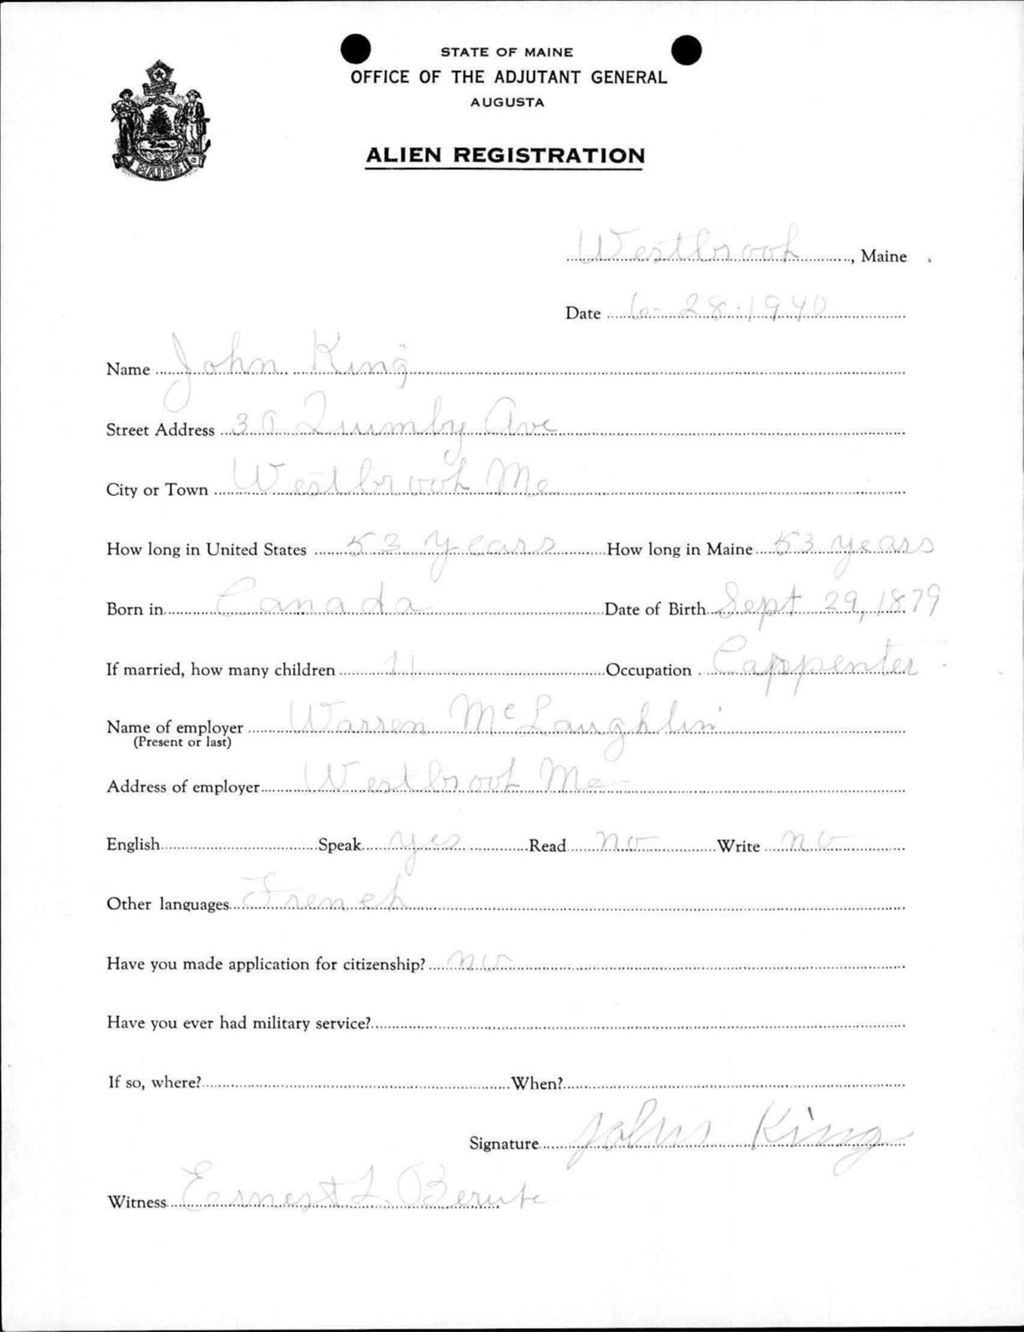 STATE OF MAINE
OFFICE OF THE ADJUTANT GENERAL
AUGUSTA
ALIEN REGISTRATION
MAINE
Westbrook, Maine
Date 6-28-1940
Name John King
Street Address 30 Quimby Ave
City or Town Westbrook Me
How long in United States 53 years How long in Maine 53 years
Born in Canada Date of Birth Sept 29, 1879
If married, how many children 11 Occupation Cappenter
Name of employer Warren McLaughlin
(Present or last)
Address of employer Westbrook Me
English Speak yes Read no Write no
Other languages French
Have you made application for citizenship? no
Have you ever had military service?
If so, where? When?
Signature John King
Witness Ernest L